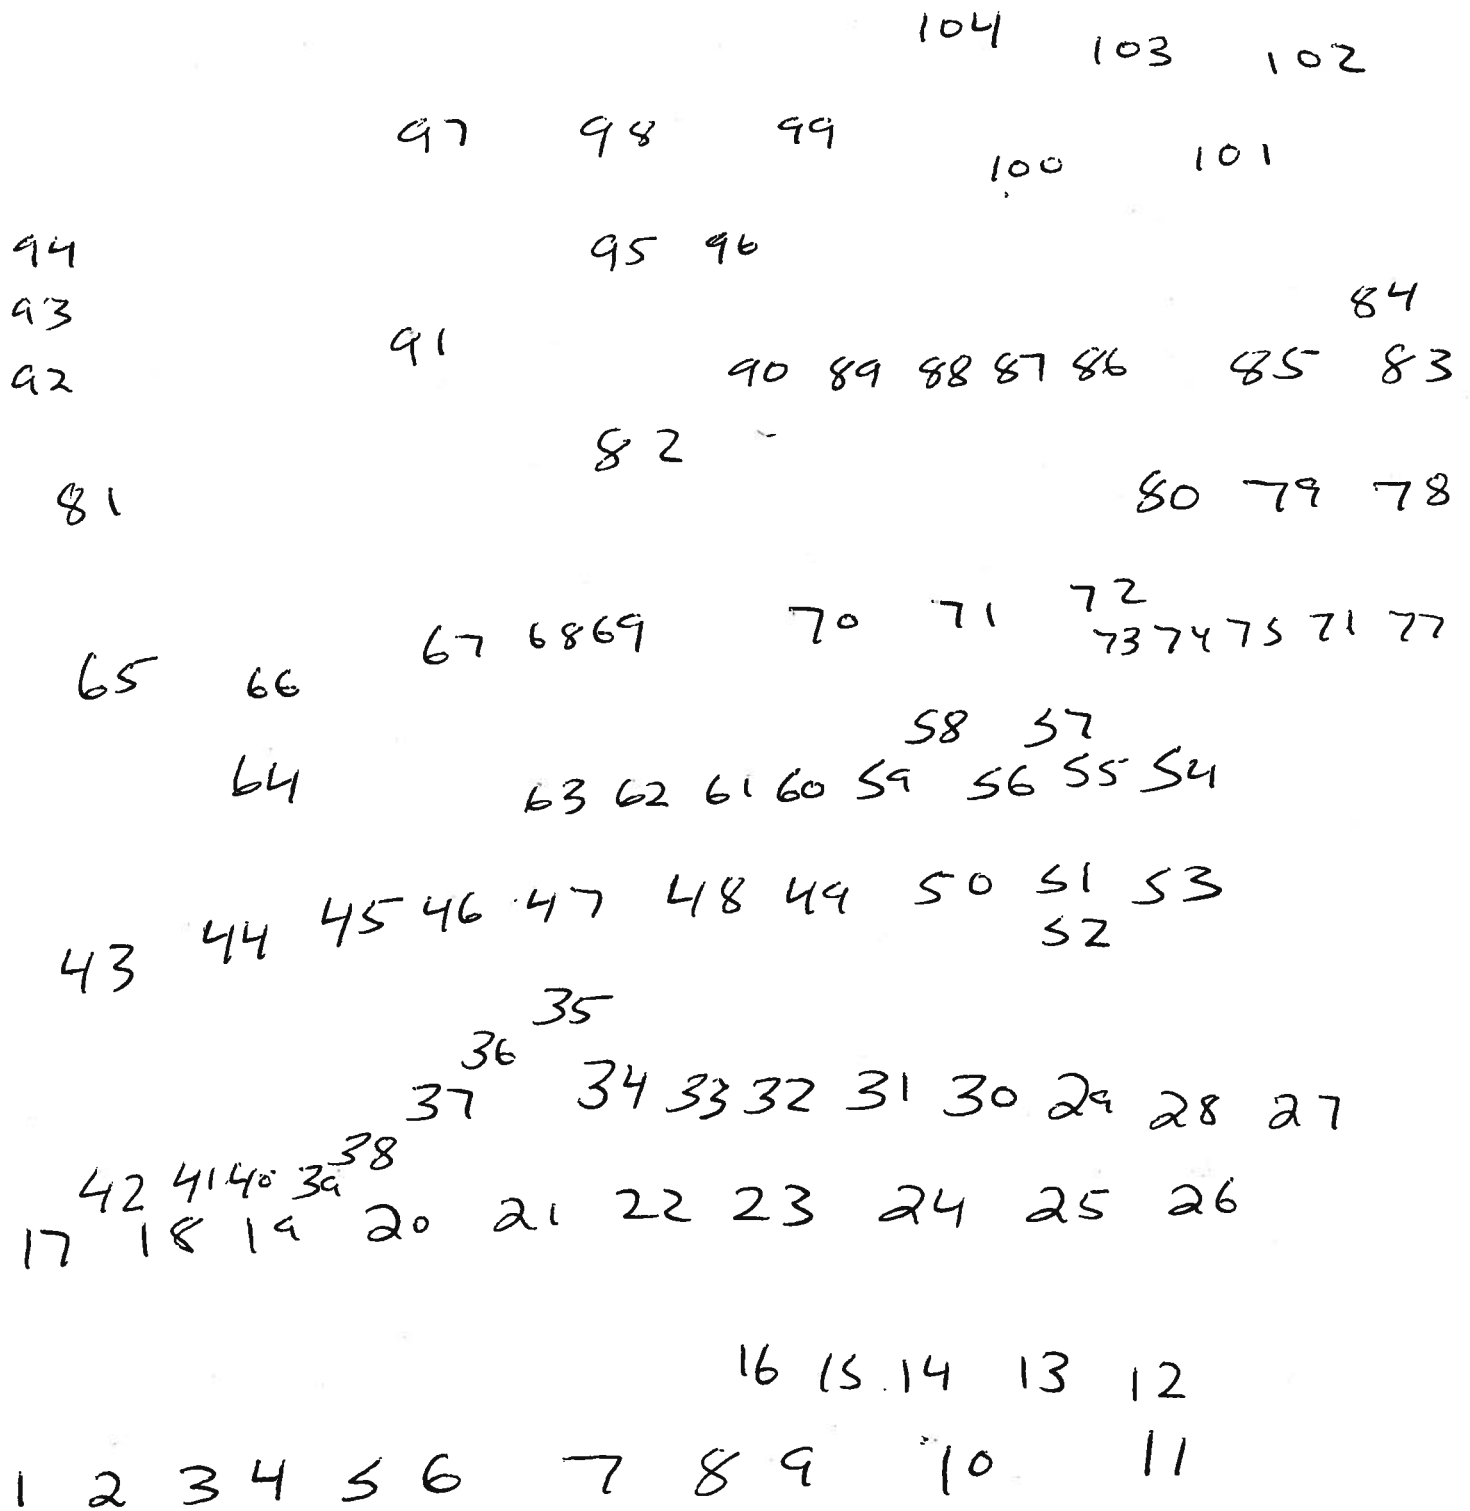 104 103 102
97 98 99 100 101
94 95 96
93 84
91 90 89 88 87 86 85 83
92
82
81 80 79 78
72
67 68 69 70 71 73 74 75 71 77
65 66
58 57
64 63 62 61 60 59 56 55 54
43 44 45 46 47 48 49 50 51 53
52
35
36
37 34 33 32 31 30 29 28 27
38
42 41 40 39
17 18 19 20 21 22 23 24 25 26
16 15 14 13 12
1 2 3 4 5 6 7 8 9 10 11